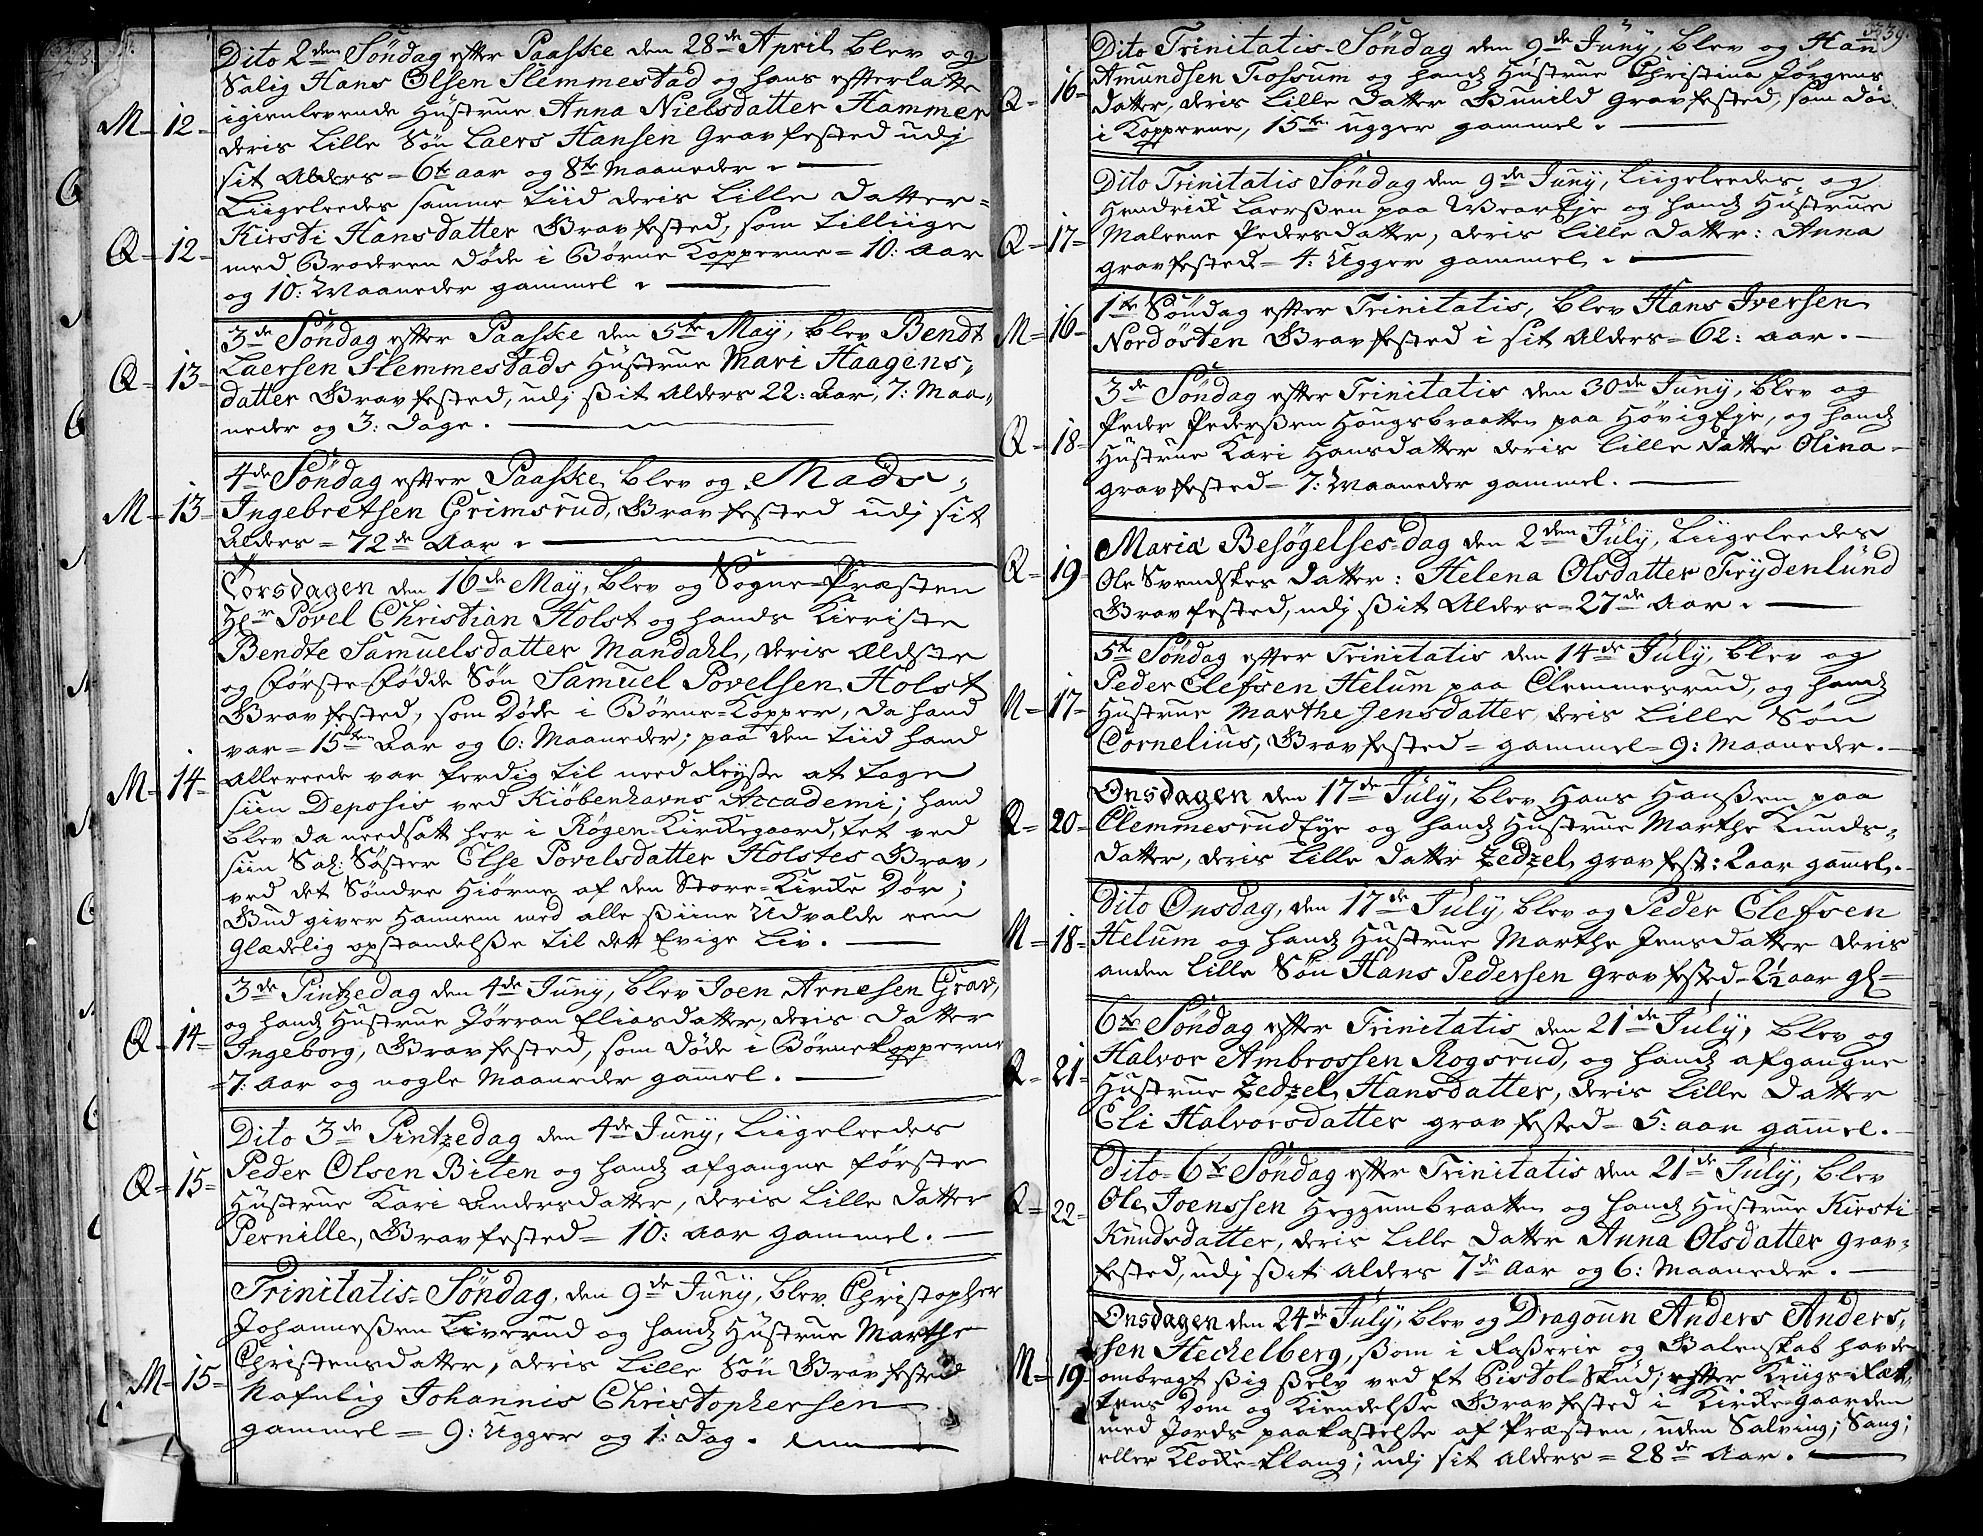 Dito 2den Søndag efter Paaske den 28de April, blev og
Salig Hans Olsen Slemmestad og hans efterlatte
igienlevende Hustrue Anna Nielsdatter Hammer
M = 12 = deris Lille Søn Laers Hansen Gravfested udj
sit Alders = 6te aar og 8te Maaneder.
Liigeleedes samme Tiid deris Lille Datter =
Q = 12 = Kirsti Hansdatter Gravfested, som tilliige
med Broderen døde i Børne Kopperne = 10: Aar
og 10: Maaneder gammel.
3de Søndag efter Paaske den 5te May, blev Bendt
Q = 13 = Laersen Slemmestads Hustrue Mari Haagens-
datter Gravfested, udj sit Alders 22: Aar, 7: Maa-
neder og 3: Dage.
4de Søndag efter Paaske, blev og Mads
M = 13 = Ingebretsen Grimsrud, Gravfested udj sit
Alders = 72de Aar.
Torsdagen den 16de May, blev og Sogne-Præsten
Hr Povel Christian Holst og hands Kieriste
Bendte Samuelsdatter Mandahl, deris Ældste
og Første-Fødde Søn Samuel Povelsen Holst
Gravfested, som døde i Børne-Kopper, da hand
var = 15ten Aar og 6: Maaneder; paa den Tiid hand
M = 14 = allereede var ferdig til need Reyse at tage
siin Deposis ved Kiøbenhavns Accademi; hand
blev da needsatt her i Røgen Kirkegaard, tet ved
siin Sal: Søster Else Povelsdatter Holstes Grav,
ved det Søndre Hiørne af den Store-Kirke Dør;
Gud giver Hannem med alle siine Udvalde een
Glædelig opstandelse til det Evige Liv.
3de Pintzedag den 4de Juny, blev Joen Arnesen Grav,
og hands Hustrue Jørran Eliasdatter, deris Datter
Q = 14 = Ingeborg, Gravfested, som døde i Børnekopperne
= 7: Aar og nogle Maaneder gammel.
Dito 3de Pintzedag den 4de Juny, Liigeleedes
Q = 15 = Peder Olsen Biten og hands afgangne første
Hustrue Kari Andersdatter, deris Lille Datter
Pernille, Gravfested = 10: Aar gammel.
Trinitatis-Søndag, den 9de Juny, blev Christopher
Johannesen Liverud og hands Hustrue Marthe
Christensdatter, deris Lille Søn Gravfested
M = 15 = Nafnlig Johannis Christophersen
gammel = 9: Ugger og 1: Dag.
339.
Dito Trinitatis-Søndag den 9de Juny, blev og Han
Q = 16 = Amundsen Fossum og hands Hustrue Christina Jørgens
datter, deris Lille Datter Gunild Gravfested, som død
i Kopperne, 15ten ugger gammel.
Dito Trinitatis Søndag den 9de Juny, Liigeleedes og
Hendrick Laersen paa Eje og hands Hustrue
Q = 17 = Malene Pedersdatter, deris Lille Datter: Anna
gravfested = 4: Ugger gammel.
1te Søndag efter Trinitatis, blev Hans Iversen
M = 16 = Nordøsten Gravfested i sit Alders = 62: aar.
3de Søndag efter Trinitatis den 30de Juny, blev og
Peder Pedersen Hougsbraatten paa HøvigEje, og hands
Q = 18 = Hustrue Kari Hansdatter deris Lille Datter Olina
gravfested = 7: Maaneder gammel.
Mariæ Besøgelses-dag den 2den July, Liigeleedes
Q = 19 = Ole Svendskes Datter: Helena Olsdatter Frydenlund
Gravfested, udj sit Alders = 27de Aar.
5te Søndag efter Trinitatis den 14de July, blev og
Peder Elefsen Helum paa Clemmesrud, og hands
M = 17 = Hustrue Marthe Jensdatter, deris Lille Søn
Cornelius, Gravfested = gammel = 9: Maaneder.
Onsdagen den 17de July, blev Hans Hansen paa
Q = 20 = ClemmesrudEje og hands Hustrue Marthe Knuds-
datter, deris Lille Datter Zedzel, gravfest: 2 aar gamel.
Dito Onsdag, den 17de July, blev og Peder Elefsen
M = 18 = Helum og hands Hustrue Marthe Jensdatter deris
anden Lille Søn Hans Pedersen Gravfested = 2½ aar gl
6te Søndag efter Trinitatis den 21de July, blev og
Halvor Ambrossen Rogsrud, og hands afgangne
Q = 21 = Hustrue Zedzel Hansdatter, deris Lille Datter
Eli Halvorsdatter gravfested = 5: aar gamel.
Dito = 6te Søndag efter Trinitatis den 21de July, blev
Q = 22 = Ole Joenssen Heggumbraatten og hands Hustrue Kirsti
Knudsdatter, deris Lille Datter Anna Olsdatter grav-
fested, udj sit Alders 7de Aar og 6: Maaneder.
Onsdagen den 24de July, blev og Dragoun Anders Anders-
sen Heckelberg, som i Raserie og Galenskab havde
M = 19 = ombragt sig selv ved et Pistol-Skud; efter Krigs-Ræt-
tens Dom og Kiendelse Gravfested i Kirke-gaarden
med Jords paakastelse af Præsten, uden Salving; Sang;
eller Klocke-klang; udj sit Alders = 28de Aar.